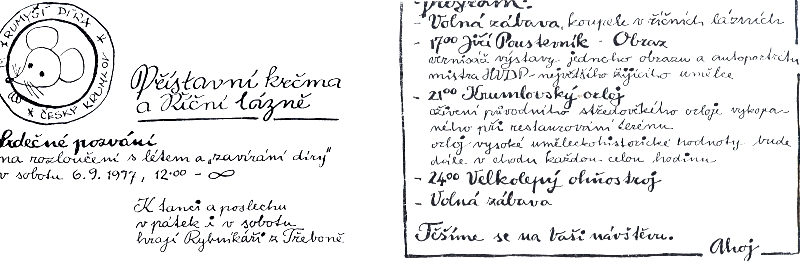 KRUMYŠÍ DÍRA
ČESKÝ KRUMLOV
Přístavní krčma
a Říční lázně
Srdečné pozvání
na rozloučení s létem a „zavírání díry"
v sobotu 6.9.1997, 12.00 - ∞
K tanci a poslechu
v pátek i v sobotu
hrají Rybníkáři z Třeboně
program:
- Volná zábava, koupele v říčních lázních
- 17.00 Jiří Poustevník - Obraz
vernisáž výstavy jednoho obrazu a autoportrétu
mistra HVDP - největšího žijícího umělce
- 21.00 Krumlovský orloj
oživení původního středověkého orloje vykopa-
ného při restaurování terénu
orloj vysoké uměleckohistorické hodnoty bude
dále v chodu každou celou hodinu
- 24.00 Velkolepý ohňostroj
- Volná zábava
Těšíme se na Vaši návštěvu.
Ahoj